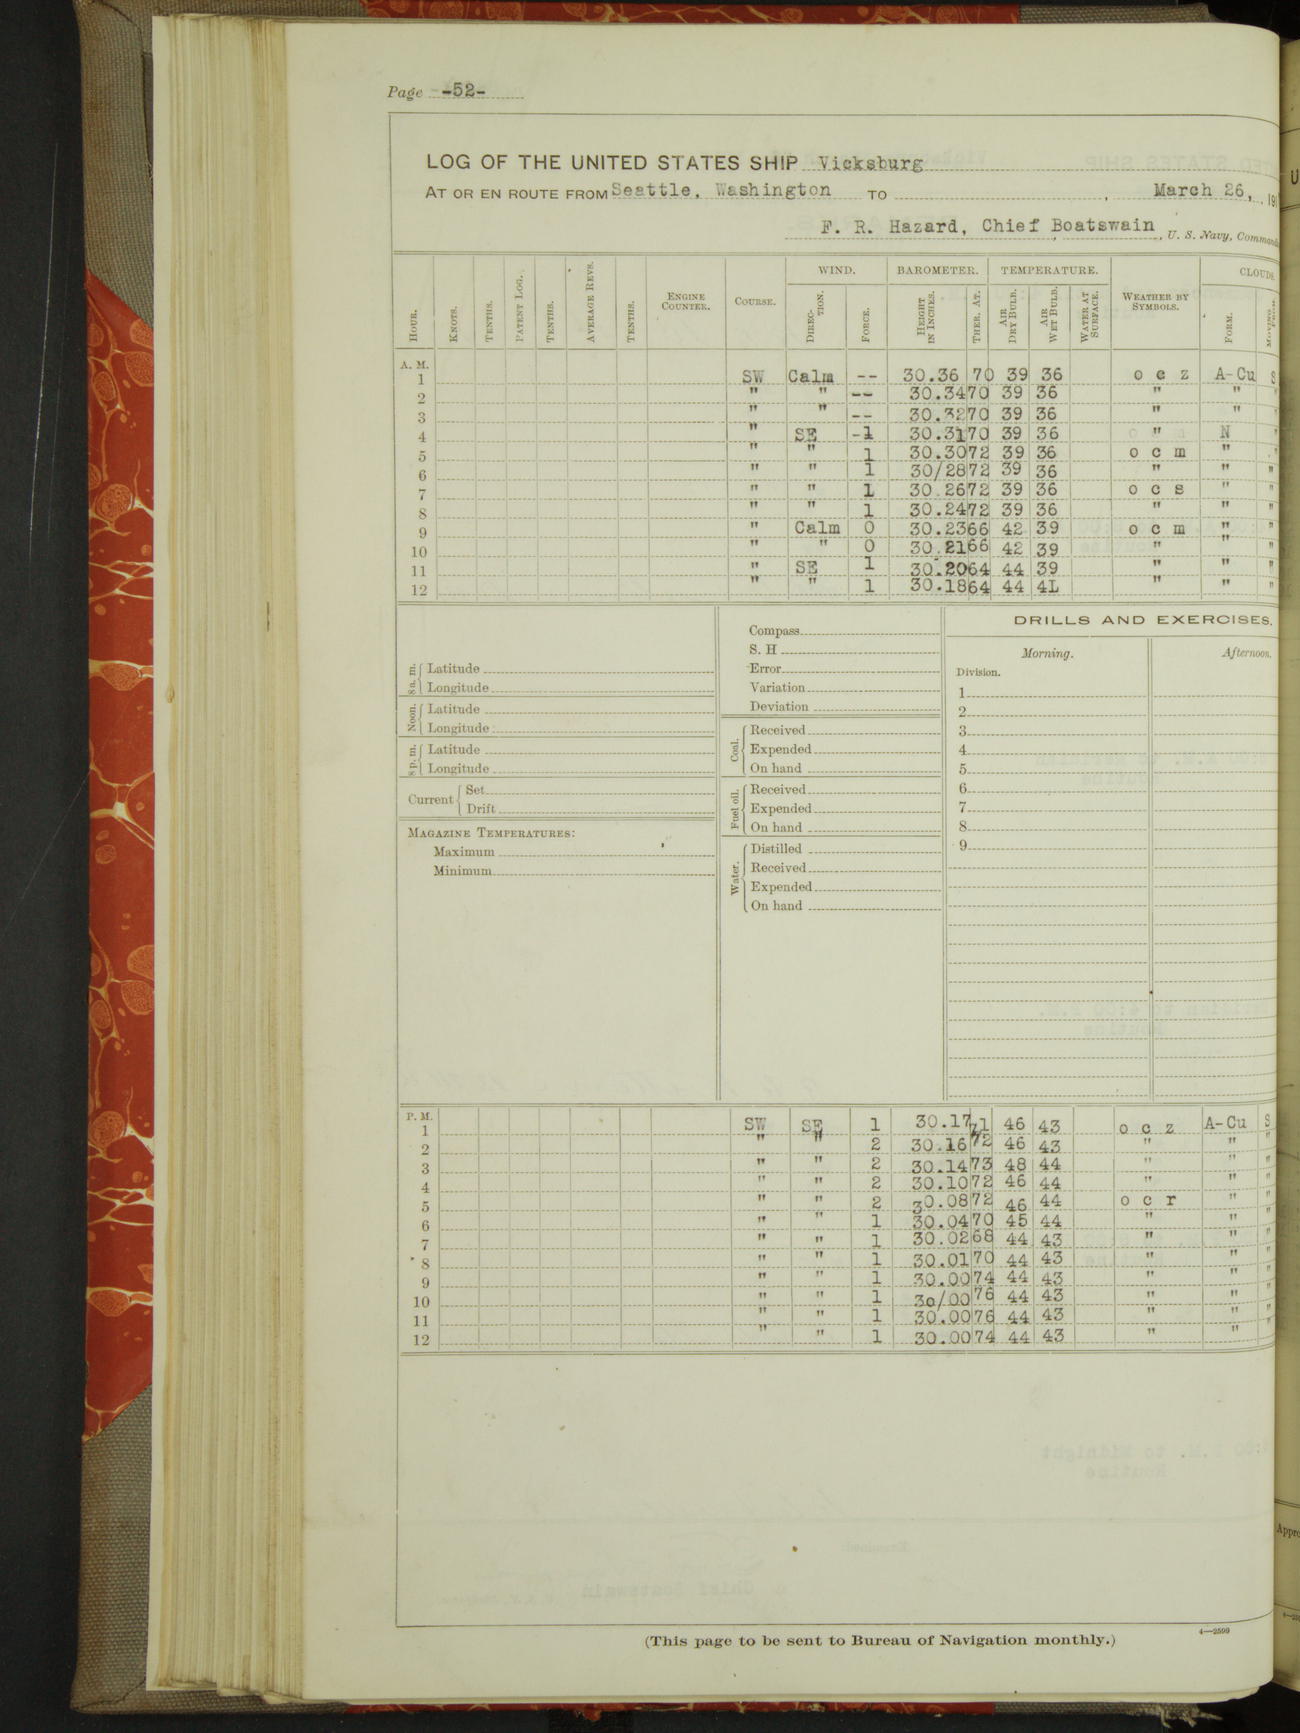 Page -52-
LOG OF THE UNITED STATES SHIP Vicksburg
AT OR EN ROUTE FROM Seattle, Washington TO , March 26, , 191
F. R. Hazard, Chief Boatswain , U. S. Navy, Command
HOUR. KNOTS. TENTHS. PATENT LOG. TENTHS. AVERAGE REVS. TENTHS. ENGINE COUNTER. COURSE. WIND. DIRECTION. FORCE. BAROMETER. HEIGHT IN INCHES. THER. AT. TEMPERATURE. AIR DRY BULB. AIR WET BULB. WATER AT SURFACE. WEATHER BY SYMBOLS. CLOUDS. FORM. MOVING
A. M.
1 SW Calm -- 30.36 70 39 36 o c z A-Cu S
2 " " -- 30.34 70 39 36 " " "
3 " " -- 30.32 70 39 36 " " "
4 " SE -1 30.31 70 39 36 " N "
5 " " 1 30.30 72 39 36 o c m " "
6 " " 1 30/28 72 39 36 " " "
7 " " 1 30.26 72 39 36 o c s " "
8 " " 1 30.24 72 39 36 " " "
9 " Calm 0 30.23 66 42 39 o c m " "
10 " " 0 30.21 66 42 39 " " "
11 " SE 1 30.20 64 44 39 " " "
12 " " 1 30.18 64 44 4L " " "
8 a. m. Latitude
Longitude
Noon. Latitude
Longitude
8 p. m. Latitude
Longitude
Current Set
Drift
MAGAZINE TEMPERATURES:
Maximum
Minimum
Compass
S. H
Error
Variation
Deviation
Coal. Received
Expended
On hand
Fuel oil. Received
Expended
On hand
Water. Distilled
Received
Expended
On hand
DRILLS AND EXERCISES.
Morning. Afternoon.
Division.
1
2
3
4
5
6
7
8
9
P. M.
1 SW SE 1 30.17 71 46 43 o c z A-Cu S
2 " " 2 30.16 72 46 43 " " "
3 " " 2 30.14 73 48 44 " " "
4 " " 2 30.10 72 46 44 " " "
5 " " 2 30.08 72 46 44 o c r " "
6 " " 1 30.04 70 45 44 " " "
7 " " 1 30.02 68 44 43 " " "
8 " " 1 30.01 70 44 43 " " "
9 " " 1 30.00 74 44 43 " " "
10 " " 1 30/00 76 44 43 " " "
11 " " 1 30.00 76 44 43 " " "
12 " " 1 30.00 74 44 43 " "
(This page to be sent to Bureau of Navigation monthly.)
4—2599